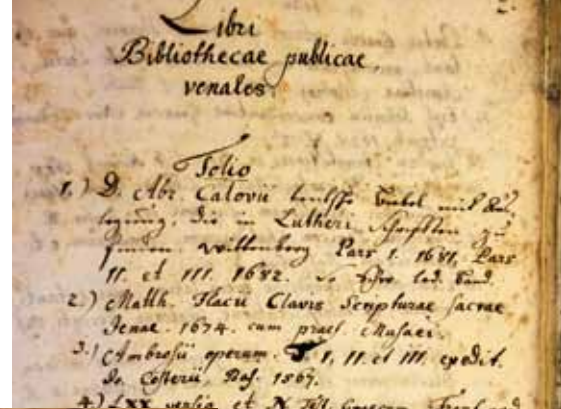 Libri
Bibliothecae publicae,
venales.
Folio
1.) D. Abr. Calovii teutsche Bibel mit Aus
legung, die in Lutheri Schrifften zu
finden. Wittenberg Pars I. 1681, Pars
II. et III. 1682.
2.) Matth. Flacii Clavis Scripturae sacrae
Jenae. 1674. cum praef. Musaei.
3.) Ambrosii operum. T. I, II et III. expedit.
Jo. Costerii, Bas. 1567.
4.) LXX versio et N.